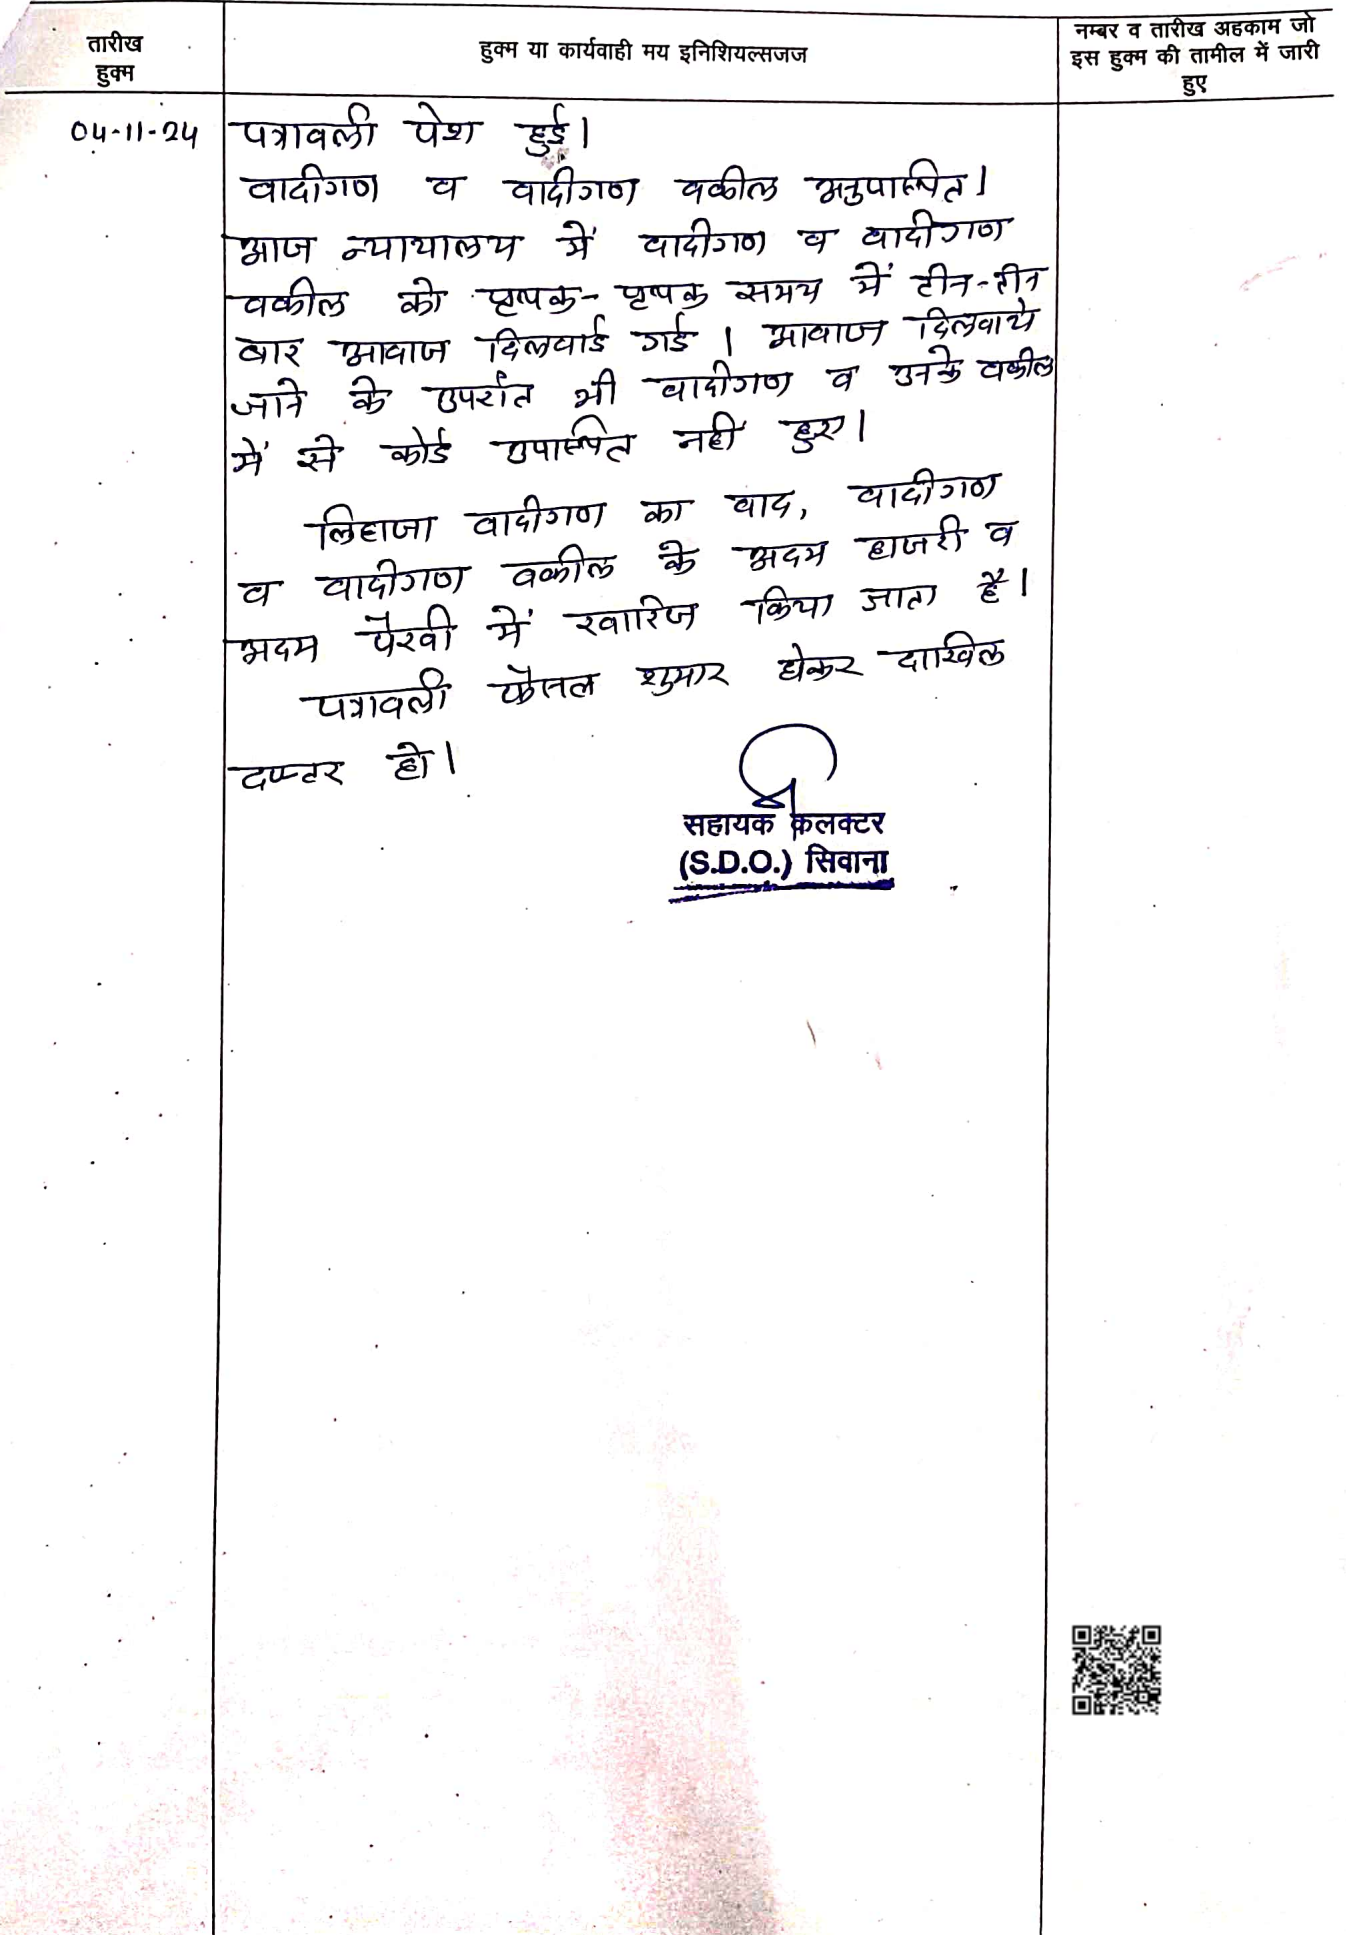 तारीख
हुक्म
हुक्म या कार्यवाही मय इनिशियल्सजज
नम्बर व तारीख अहकाम जो
इस हुक्म की तामील में जारी
हुए
04-11-24
पत्रावली पेश हुई।
वादीगण व वादीगण वकील अनुपास्थित।
आज न्यायालय में वादीगण व वादीगण
वकील को पृथक-पृथक समय में तीन-तीन
बार आवाज दिलवाई गई। आवाज दिलवाये
जाने के उपरांत भी वादीगण व उनके वकील
में से कोई उपास्थित नहीं हुए।
लिहाजा वादीगण का वाद, वादीगण
व वादीगण वकील के अदम हाजरी व
अदम पैरवी में खारिज किया जाता है।
पत्रावली फैसल शुमार होकर दाखिल
दफ्तर हो।
सहायक कलक्टर
(S.D.O.) सिवाना